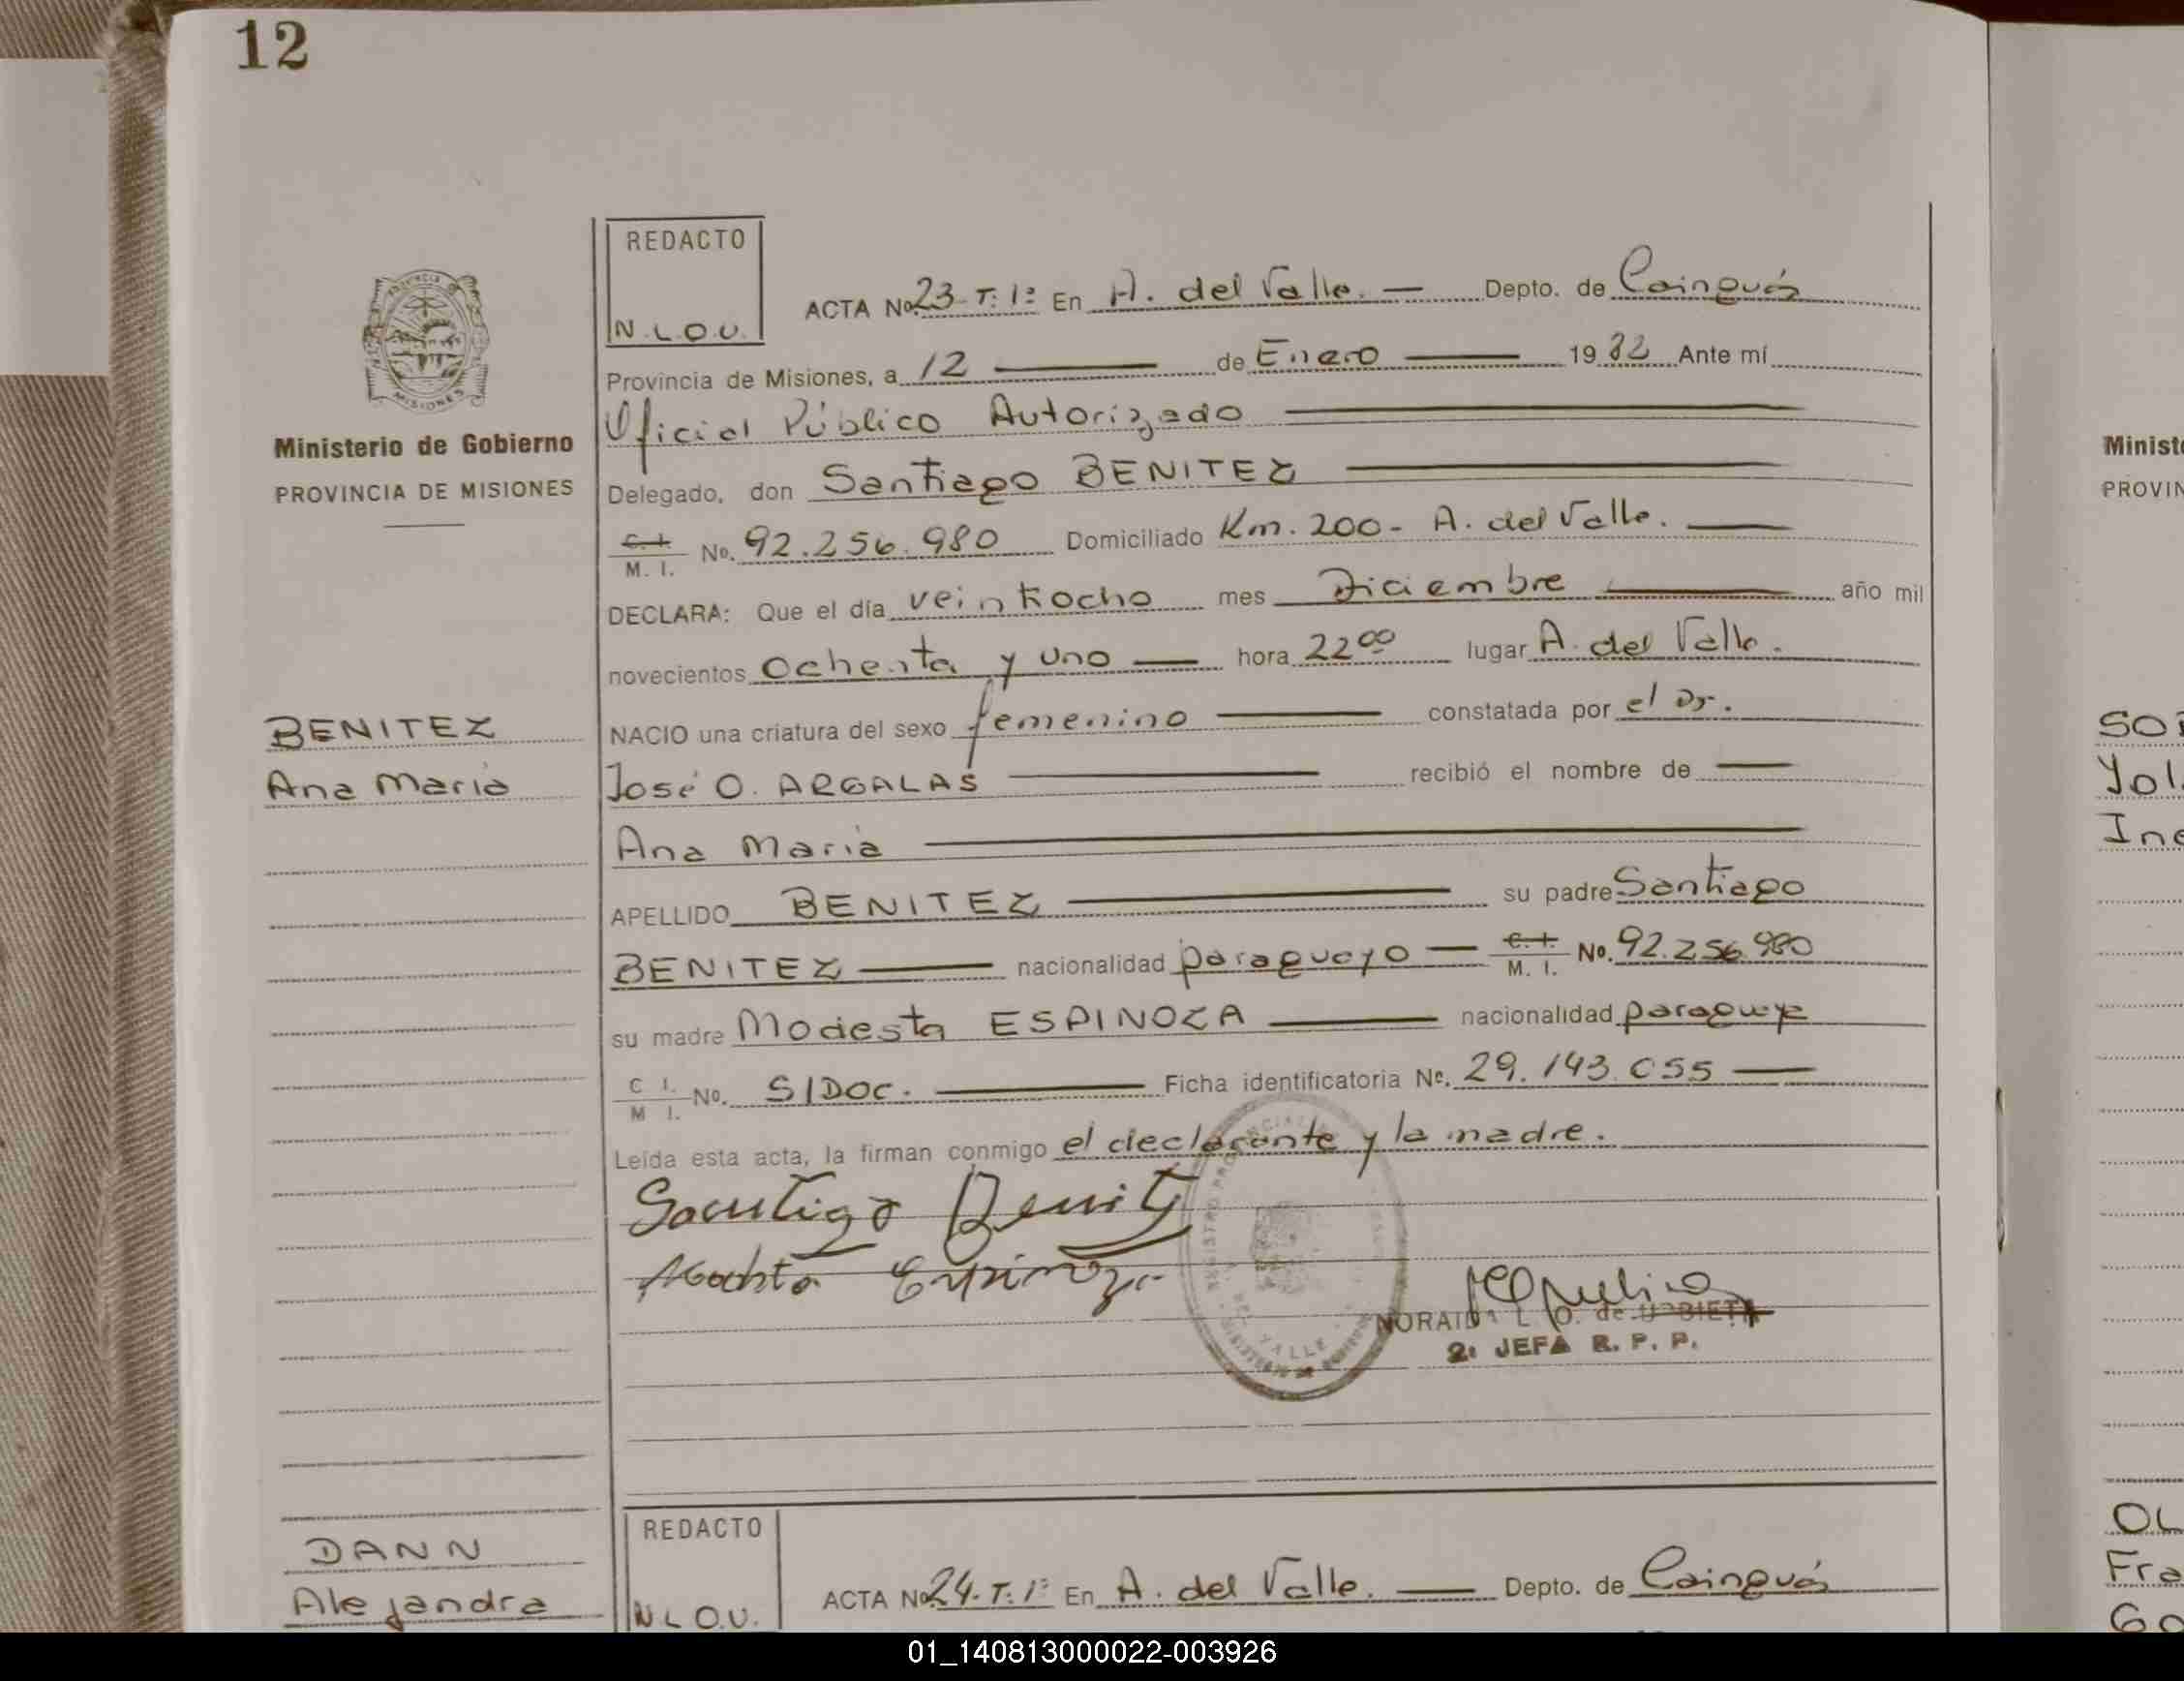 12
REDACTO
N.L.O.U.
ACTA No. 23-T: 1º En A. del Valle. — Depto. de Cainguás
Provincia de Misiones, a 12 — de Enero — 1982 Ante mí
Oficial Público Autorizado
Delegado, don Santiago BENITEZ
C.I. M. I. No. 92.256.980 Domiciliado Km. 200- A. del Valle.
DECLARA: Que el día veintiocho mes Diciembre año mil
novecientos ochenta y uno — hora 22 00 lugar A. del Valle.
NACIO una criatura del sexo femenino — constatada por el Dr.
José O. ARGALAS — recibió el nombre de —
Ana Maria
APELLIDO BENITEZ — su padre Santiago
BENITEZ — nacionalidad paraguayo — C.I. M. I. No. 92.256.980
su madre Modesta ESPINOZA — nacionalidad paraguaya
C I. M I. No. S/DOC. — Ficha identificatoria No. 29.143.055 —
Leída esta acta, la firman conmigo el declarante y la madre.
Santiago Benitez
Modesta Espinoza
NORAIDA L. O. de URBIETA
2ª JEFA R. P. P.
PROVINCIA DE
MISIONES
Ministerio de Gobierno
PROVINCIA DE MISIONES
BENITEZ
Ana Maria
DANN
Alejandra
REDACTO
N L O.U.
ACTA No. 24-T: 1º En A. del Valle. — Depto. de Cainguás
Minist
PROVIN
Yol
Ine
OL
Fra
Go
01_140813000022-003926